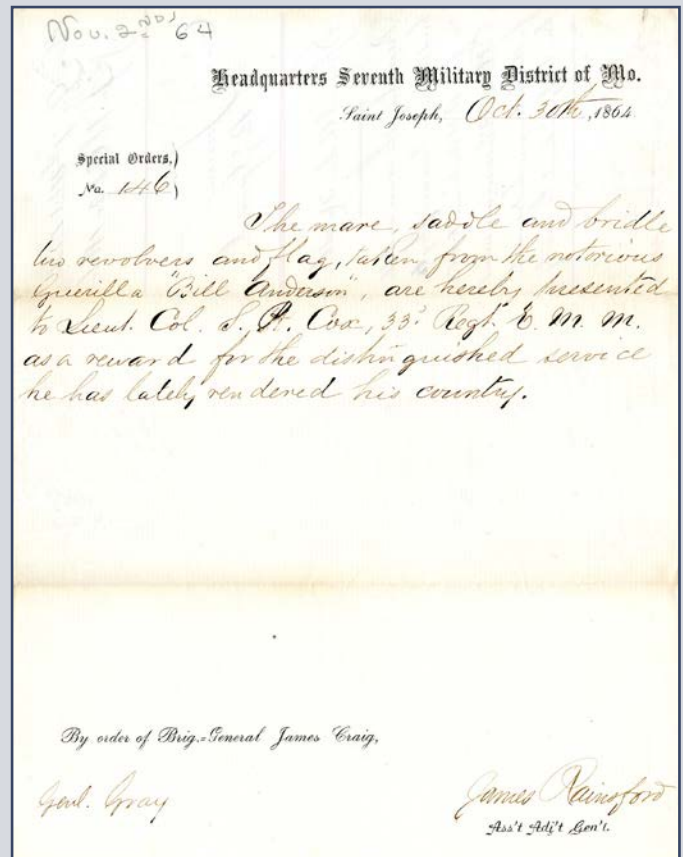 Nov. 2nd, 64
Headquarters Seventh Military District of Mo.
Saint Joseph, Oct. 30th, 1864
Special Orders,)
No. 146)
The mare, saddle and bridle
two revolvers and flag, taken from the notorious
Guerilla "Bill Anderson", are hereby presented
to Lieut. Col. S. P. Cox, 33d Regt. E. M. M.
as a reward for the distinguished service
he has lately rendered his country.
By order of Brig.=General James Craig,
Genl. Gray
James Rainsford
Ass't Adj't Gen'l.